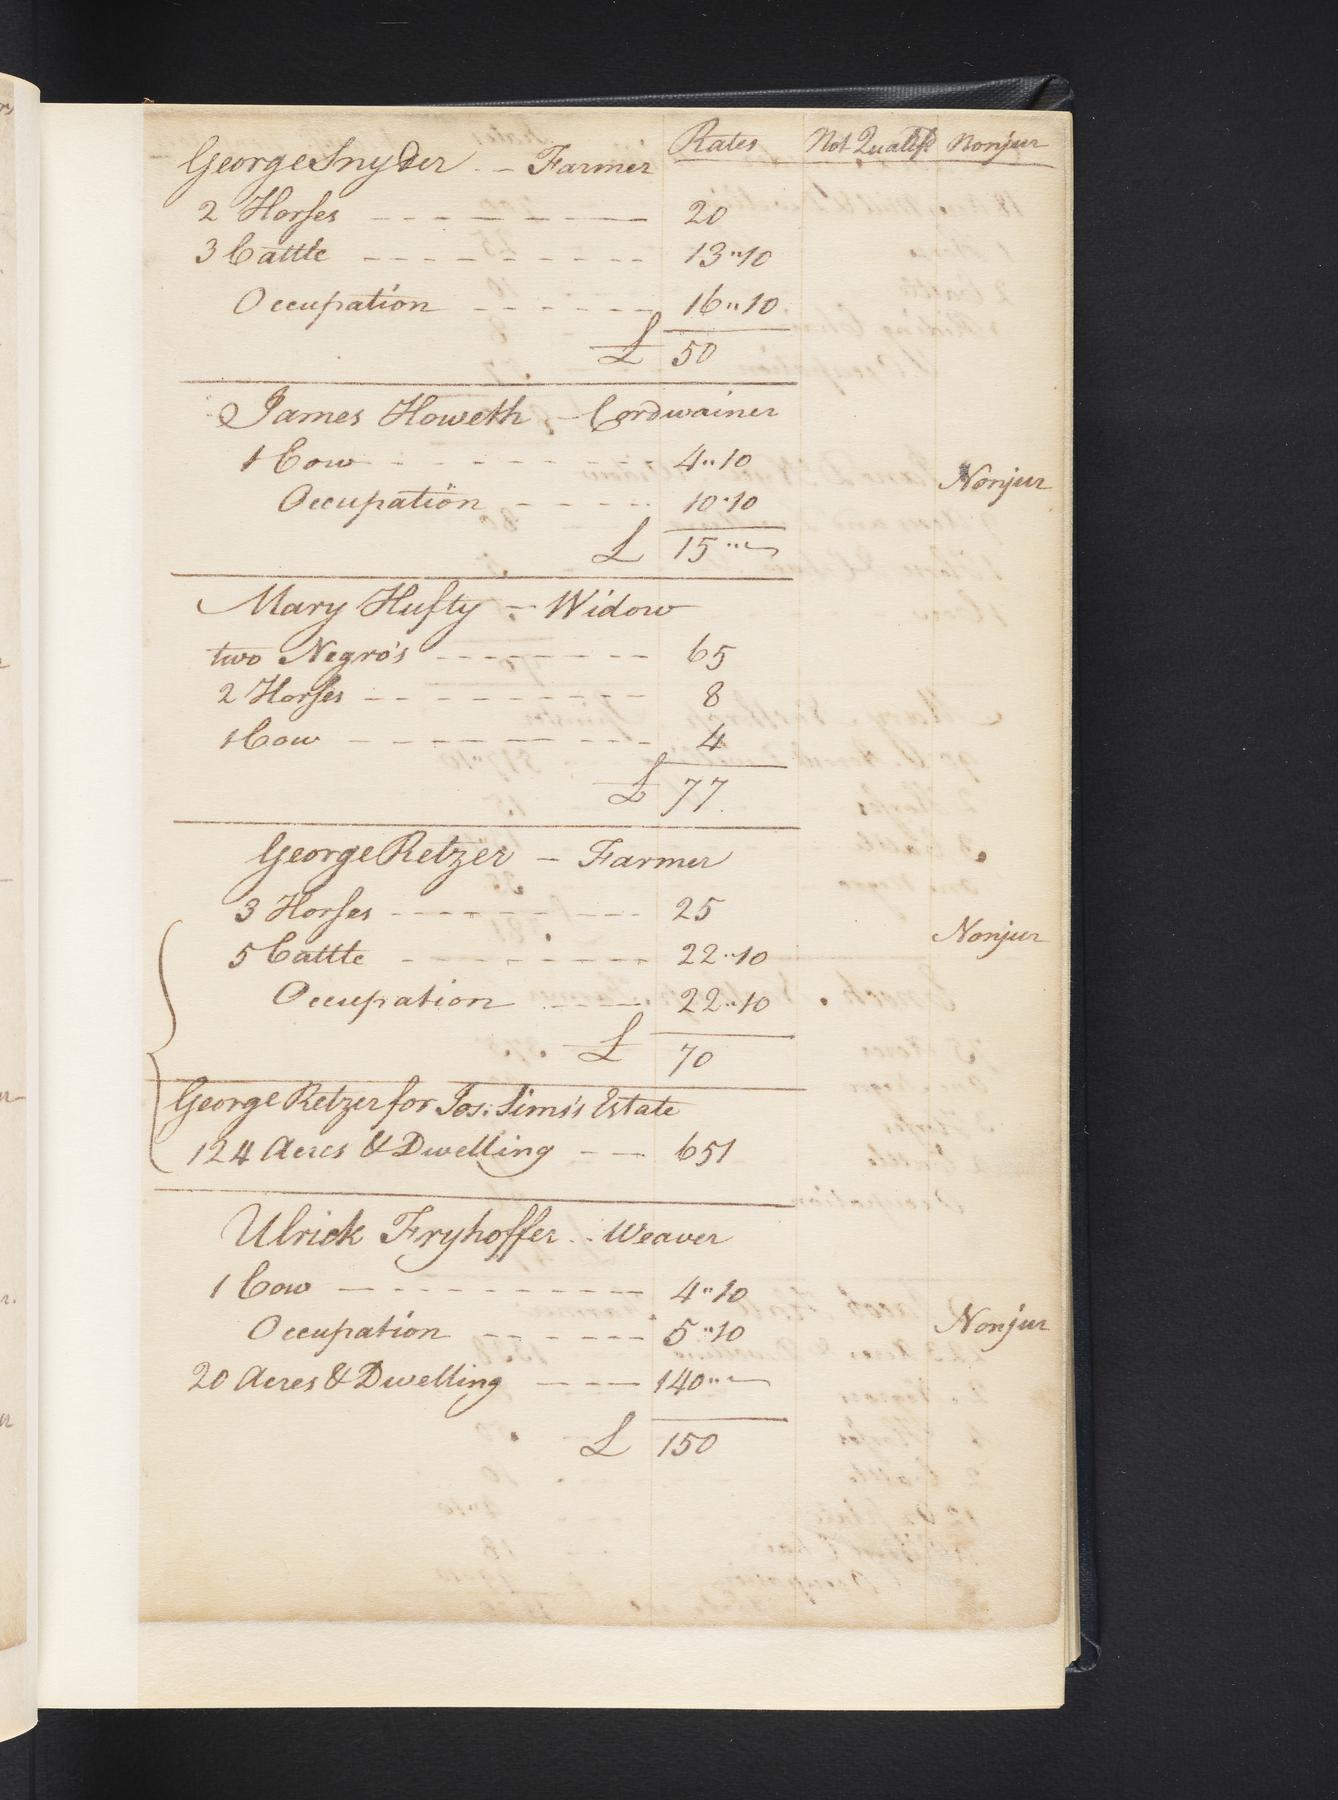 Rates Not Qualifd Nonjur
George Snyder - Farmer
2 Horses 20
3 Cattle 13..10
Occupation 16..10
£ 50
James Howeth - Cordwainer
1 Cow 4..10
Nonjur
Occupation 10..10
£ 15..~
Mary Hufty - Widow
two Negro's 65
2 Horses 8
1 Cow 4
£ 77
George Retzer - Farmer
3 Horses 25
Nonjur
5 Cattle 22..10
Occupation 22..10
£ 70
George Retzer for Jos: Sims's Estate
124 Acres & Dwelling 651
Ulrick Fryhoffer - Weaver
1 Cow 4..10
Occupation 5..10 Nonjur
20 Acres & Dwelling 140..~
£ 150